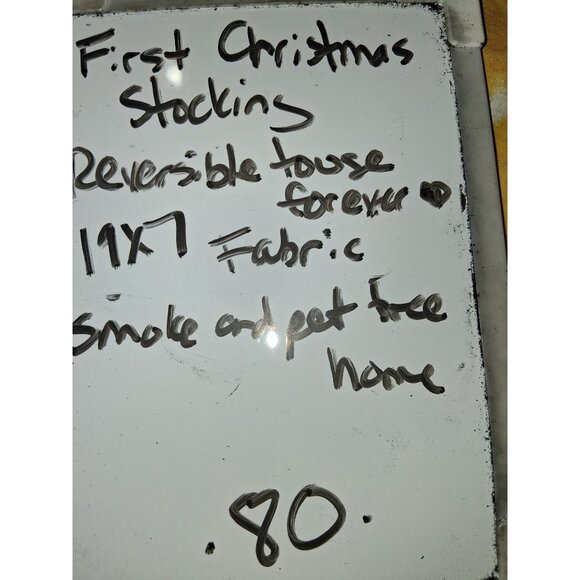 First Christmas
Stocking
Reversible to use
forever
19x7 Fabric
smoke and pet free
home
.80.